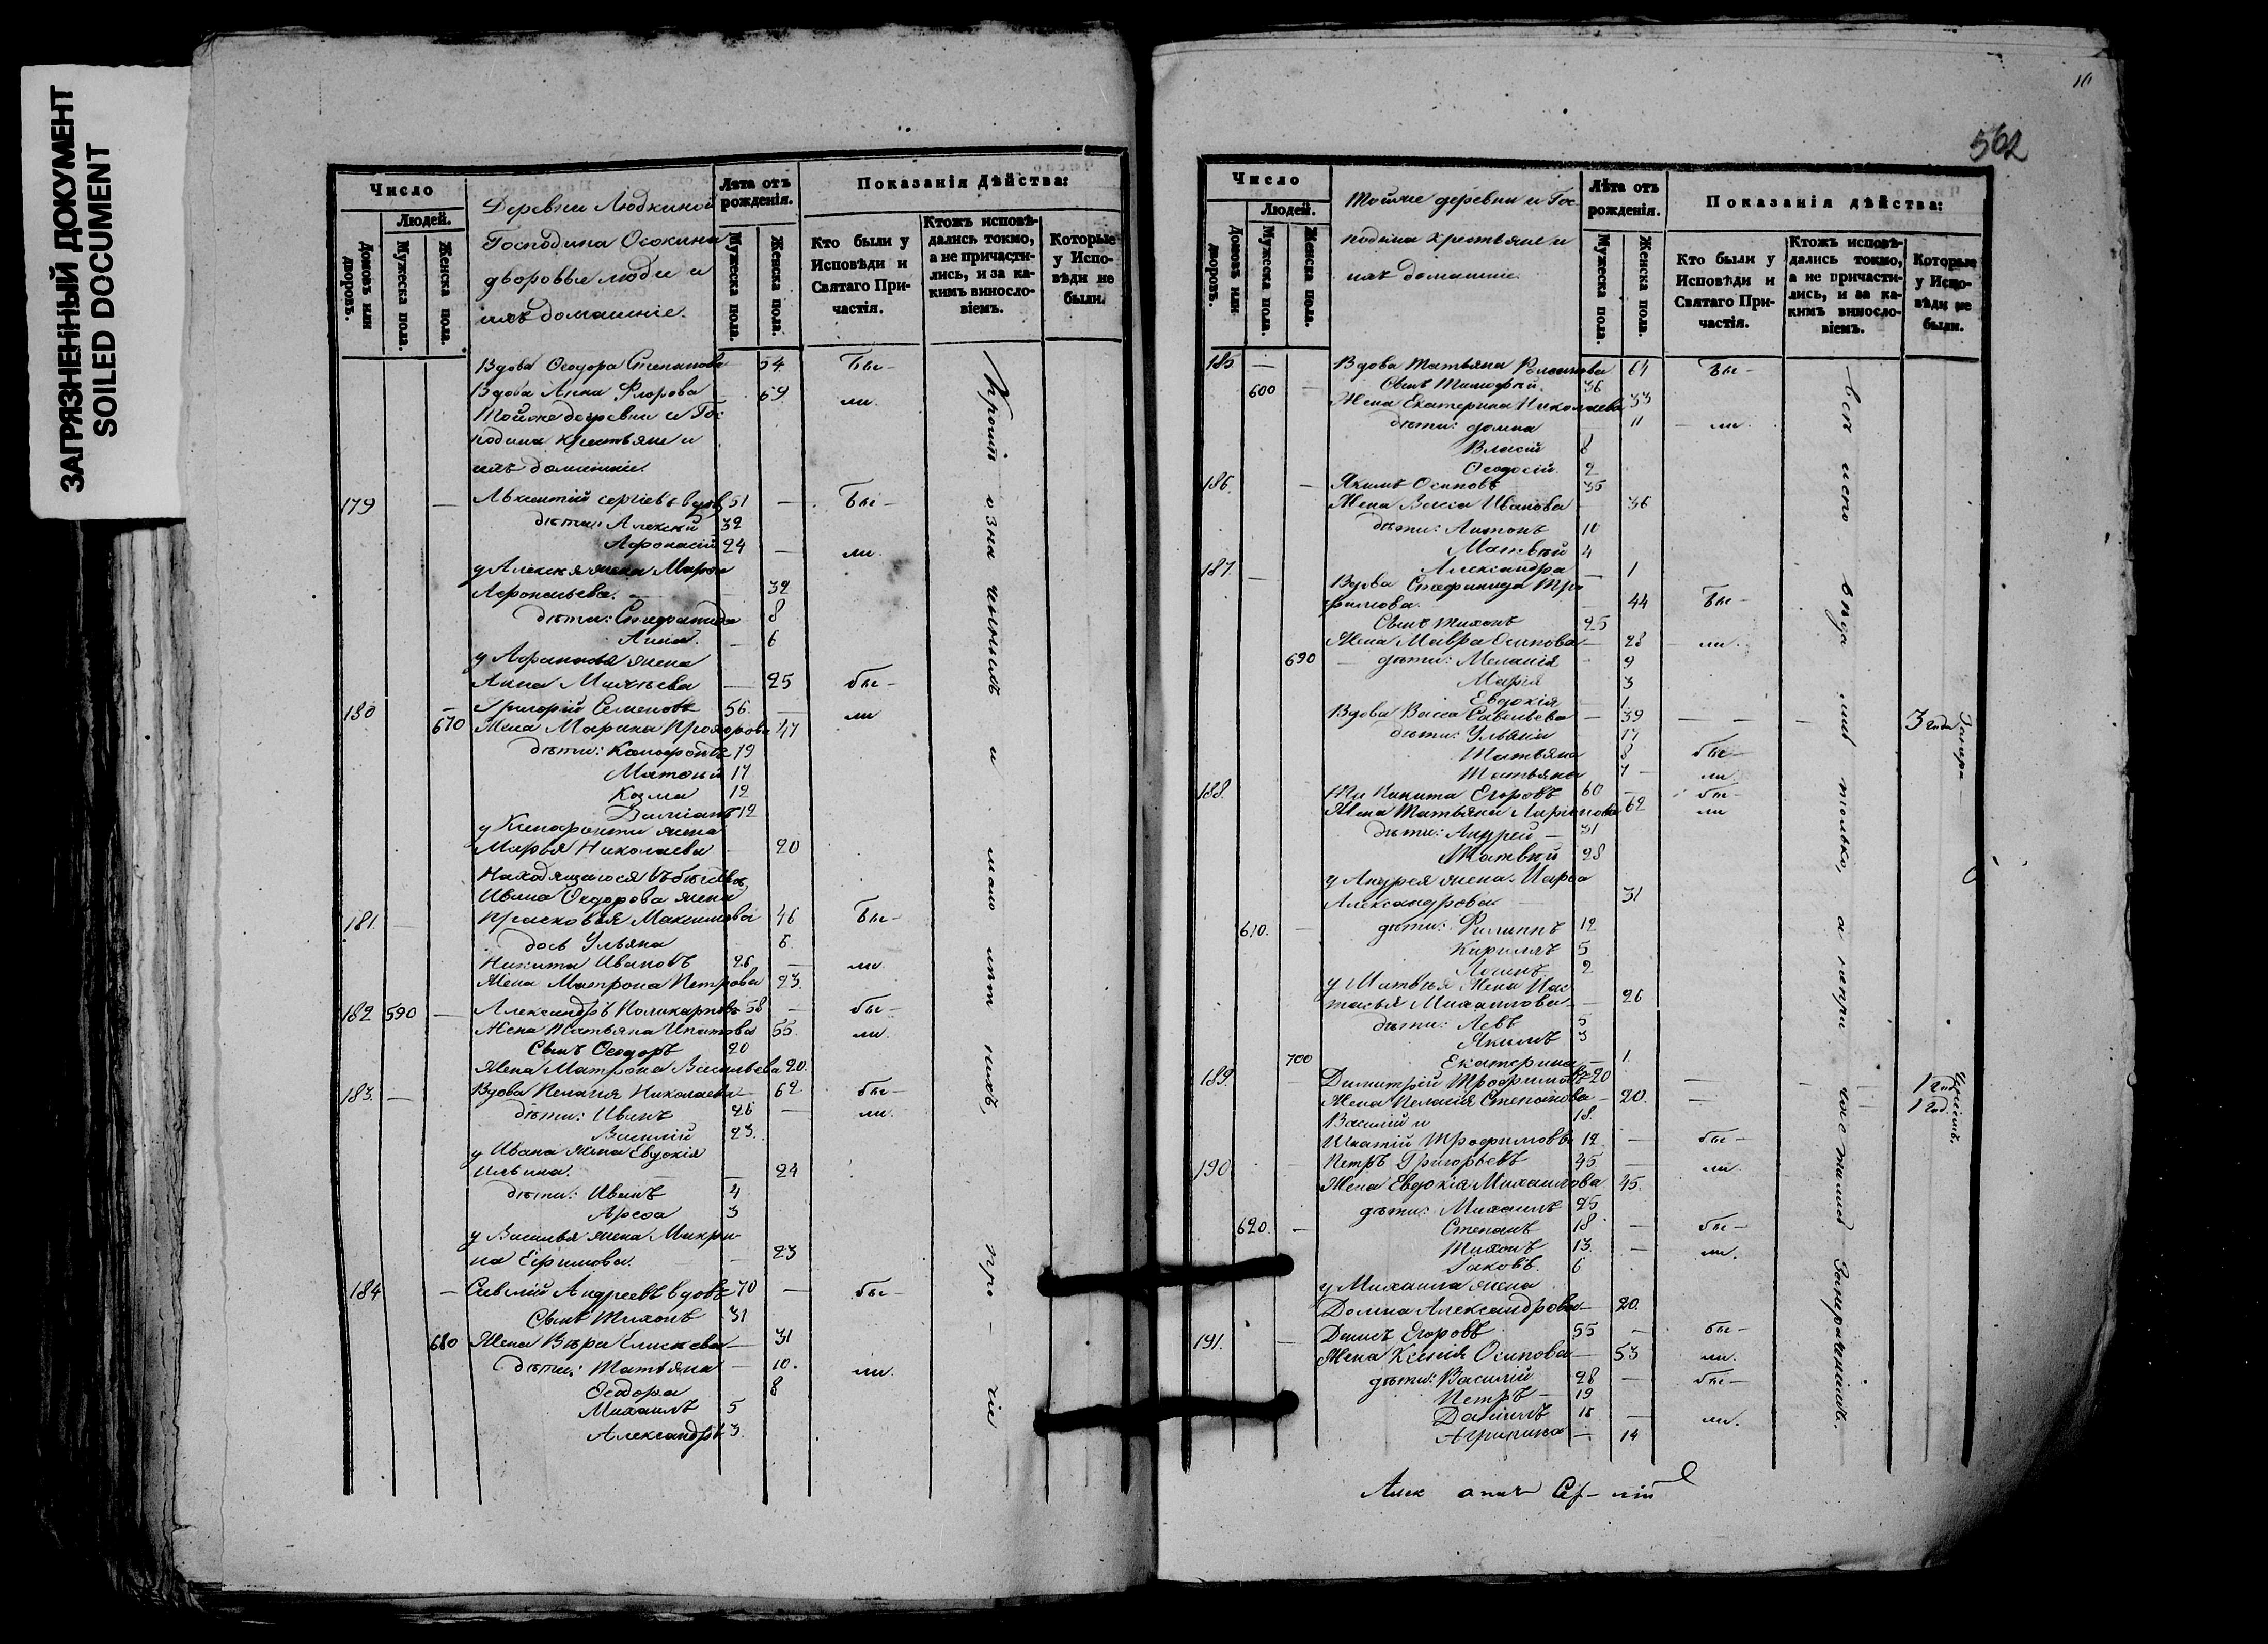 ЗАГРЯЗНЕННЫЙ ДОКУМЕНТ
SOILED DOCUMENT
Число
Людей.
Домовъ или дворовъ.
Мужеска пола.
Женска пола.
Деревни Людкиной
Господина Осокина
дворовые люди и
ихъ домашніе.
Лѣта отъ рожденія.
Мужеска пола.
Женска пола.
Показанія дѣйства:
Кто были у Исповѣди и Святаго Причастія.
Ктожъ исповѣдались токмо, а не причастились, и за какимъ винословіемъ.
Которые у Исповѣди не были.
Вдова Ѳеодора Степанова 54 бы-
Вдова Анна Флорова 69 ли.
Тойже деревни и Гос
подина крестьяне и
ихъ домашніе.
179 — Авксентій Сергіевъ вдовъ 51 — бы-
дѣти: Алексѣй 32
Аѳонасій 24 — ли.
у Алексѣя жена Марѳа
Аѳонасьева. — 32
дѣти: Степанида 8
Анна. — 6
у Аѳонасья жена
Анна Матѳѣева — 25 бы-
180 — Григорій Семеновъ 56. — ли
670 Жена Марина Прохорова 47
дѣти: 19
17
Козма 12
Даміанъ 12
жена
Марья Николаева 20
Находящагося въ бѣгахъ
Ивана Ѳедорова жена
181. — Прасковья Максимова 46 бы-
дочь Ульяна 6.
Никита Ивановъ 26 — ли.
Жена Матрона Петрова 23.
182 590 — Александръ Поликарповъ 58 — бы-
Жена Татьяна Ипатова 55. ли.
Сынъ Ѳеодоръ 20
Жена Матрона Васильева 20.
183. — Вдова Пелагія Николаева 62 бы-
дѣти: Иванъ 26 — ли.
Василій 23.
у Ивана жена Евдокія
Ильина. — 24
дѣти: Иванъ 4
Ареѳа 3
у Василья жена Макри-
на Ефимова. — 23
184 — Савелій Андреевъ вдовъ 70 — бы-
Сынъ Тихонъ 31
680 Жена Вѣра Елисѣева — 31
дѣти: Татьяна — 10. ли.
Ѳеодора 8
Михаилъ 5
Александръ 3.
и мало лѣт нихъ, про — чіе
562
Число
Людей.
Домовъ или дворовъ.
Мужеска пола.
Женска пола.
Тойже деревни и Гос
подина крестьяне и
ихъ домашніе.
Лѣта отъ рожденія.
Мужеска пола.
Женска пола.
Показанія дѣйства:
Кто были у Исповѣди и Святаго Причастія.
Ктожъ исповѣдались токмо, а не причастились, и за какимъ винословіемъ.
Которые у Исповѣди не были.
185. — Вдова Татьяна Романова 64 бы-
600 — Сынъ Тимоѳей. 36
Жена Екатерина Николаева 33
дѣти: Домна 11 — ли.
Власій 8
Ѳеодосій. 2
186. — Якимъ Осиповъ 35
Жена Васса Иванова 36
дѣти: Антонъ 10
Матвѣй 4
Александра — 1
187. — Вдова Степанида Тро
фимова. — 44 бы-
Сынъ Тихонъ 25
Жена Мавра Осипова — 28 ли.
690 — дѣти: Меланія 9
Марія 3
Евдокія 1.
Вдова Васса Савельева — 39 — — — 3 года
дѣти: Ульяна 17
Татьяна 8 бы-
Татьяна 7 — ли.
188. Никита Егоровъ 60 — бы-
Жена Татьяна Ларіонова 62 ли
дѣти: Андрей — 31
Матвѣй 28
у Андрея жена Марѳа
Александрова — 31
610. — дѣти: Филиппъ 12
Кириллъ 5
Логинъ 2
у Матвѣя жена Нас
тасья Михаилова — 26
дѣти: Левъ 5
Якимъ 3
700 Екатерина — 1.
189. Димитрій Трофимовъ 20 — 1 годъ
Жена Пелагія Степанова — 20. — 1 год.
Василій и 18.
Игнатій Трофимовы 12 — бы-
190 Петръ Григорьевъ 45 — ли.
Жена Евдокія Михаилова 45.
дѣти: Михаилъ 25
620. — Степанъ 18 — бы-
Тихонъ 13. — ли.
Іаковъ. 6
у Михаила жена
Домна Александрова — 20.
191. — Денисъ Егоровъ 55 — бы-
Жена Ксенія Осипова — 53 ли.
дѣти: Василій 28 — бы-
Петръ — 19
Даніилъ 18 — ли.
Агрипина — 14